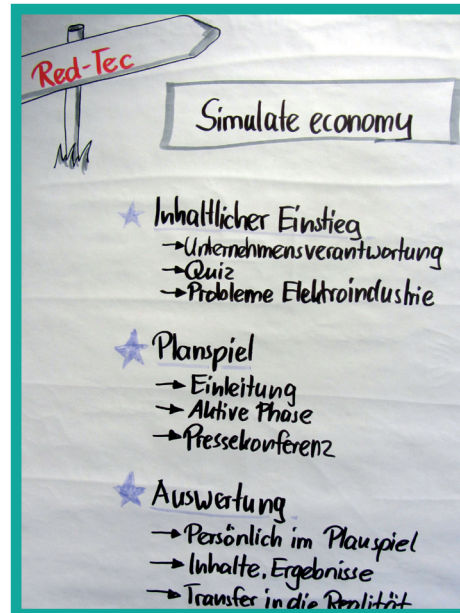 Red-Tec
Simulate economy
Inhaltlicher Einstieg
→ Unternehmensverantwortung
→ Quiz
→ Probleme Elektroindustrie
Planspiel
→ Einleitung
→ Aktive Phase
→ Pressekonferenz
Auswertung
→ Persönlich im Planspiel
→ Inhalte, Ergebnisse
→ Transfer in die Realität